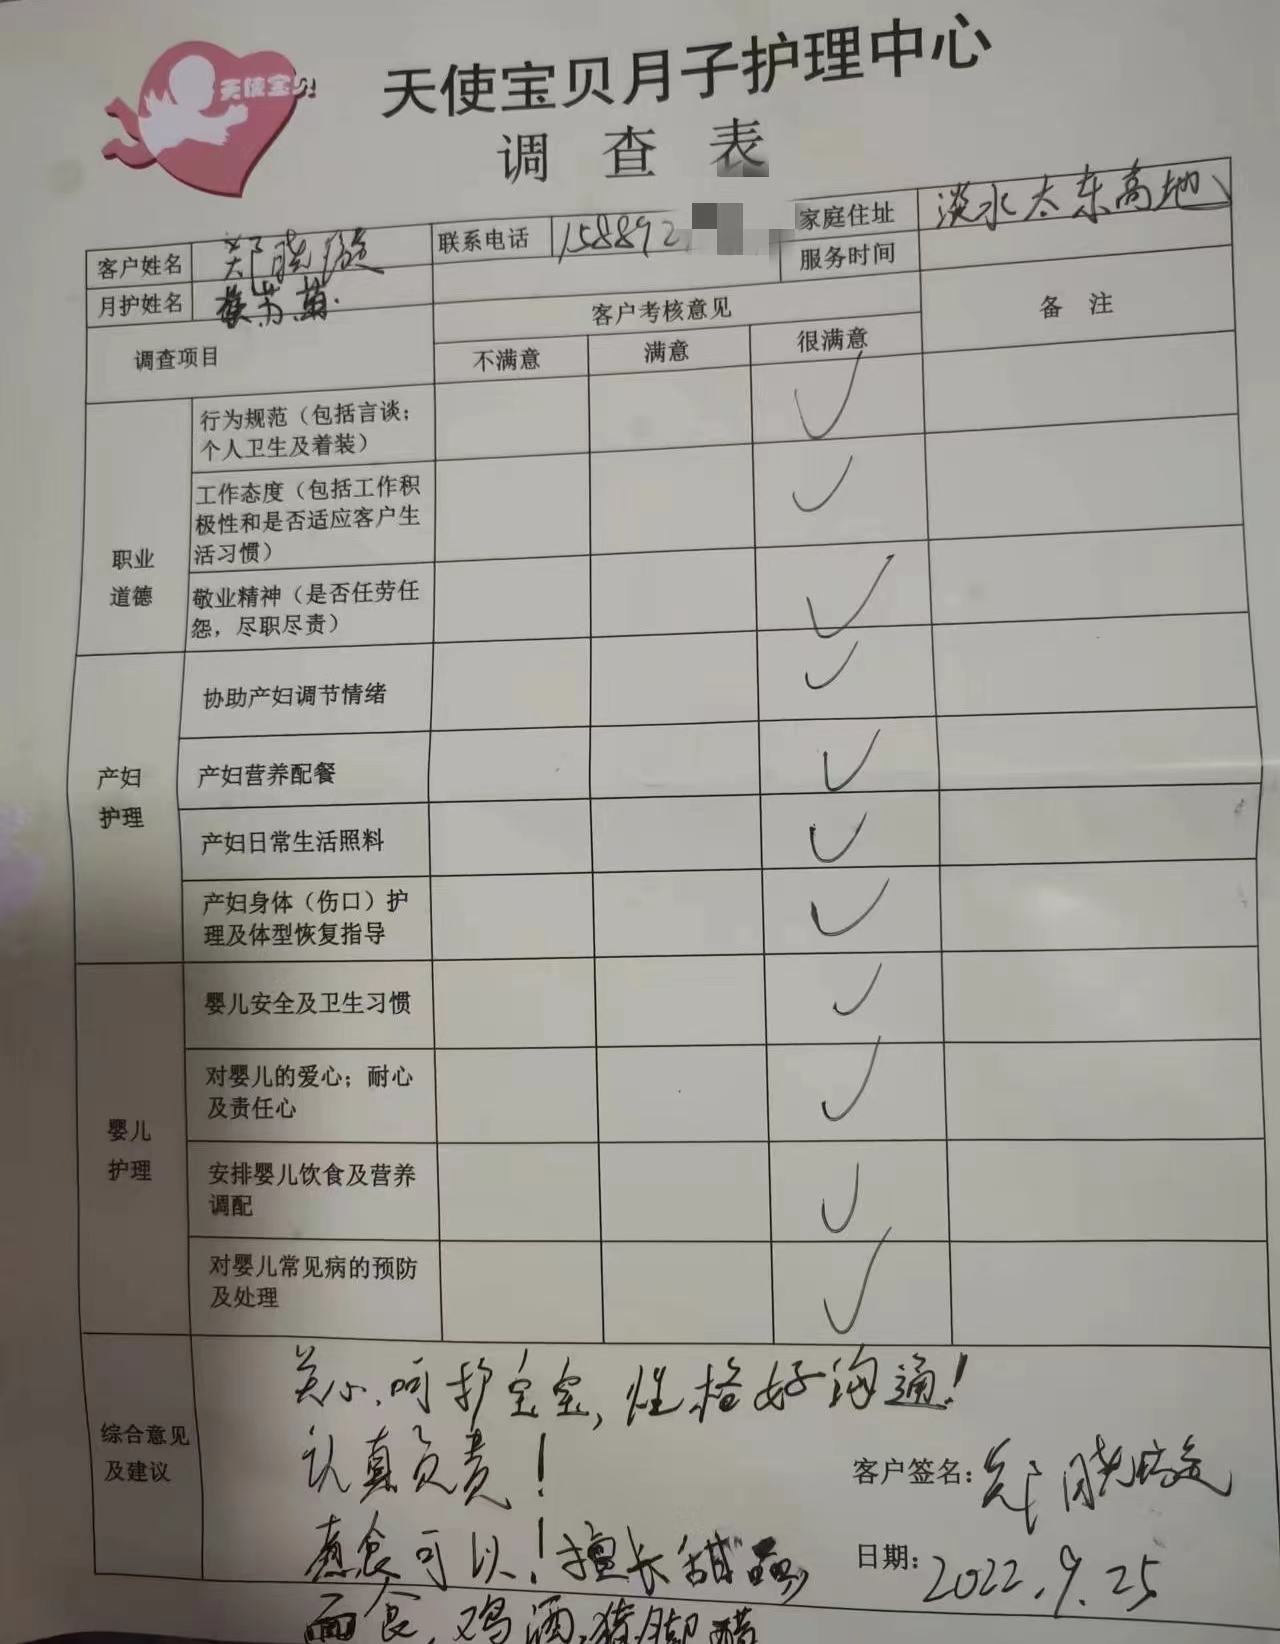 天使宝贝
天使宝贝月子护理中心
调查表
客户姓名 郑晓璇 联系电话 1588921 家庭住址 淡水太东高地
月护姓名 服务时间
调查项目 客户考核意见 备注
不满意 满意 很满意
职业
道德
行为规范（包括言谈；
个人卫生及着装）
工作态度（包括工作积
极性和是否适应客户生
活习惯）
敬业精神（是否任劳任
怨，尽职尽责）
产妇
护理
协助产妇调节情绪
产妇营养配餐
产妇日常生活照料
产妇身体（伤口）护
理及体型恢复指导
婴儿
护理
婴儿安全及卫生习惯
对婴儿的爱心；耐心
及责任心
安排婴儿饮食及营养
调配
对婴儿常见病的预防
及处理
综合意见
及建议
关心、呵护宝宝，性格好沟通！
认真负责！
煮食可以！擅长甜品，
面食，鸡酒，猪脚醋
客户签名：郑晓璇
日期：2022.9.25